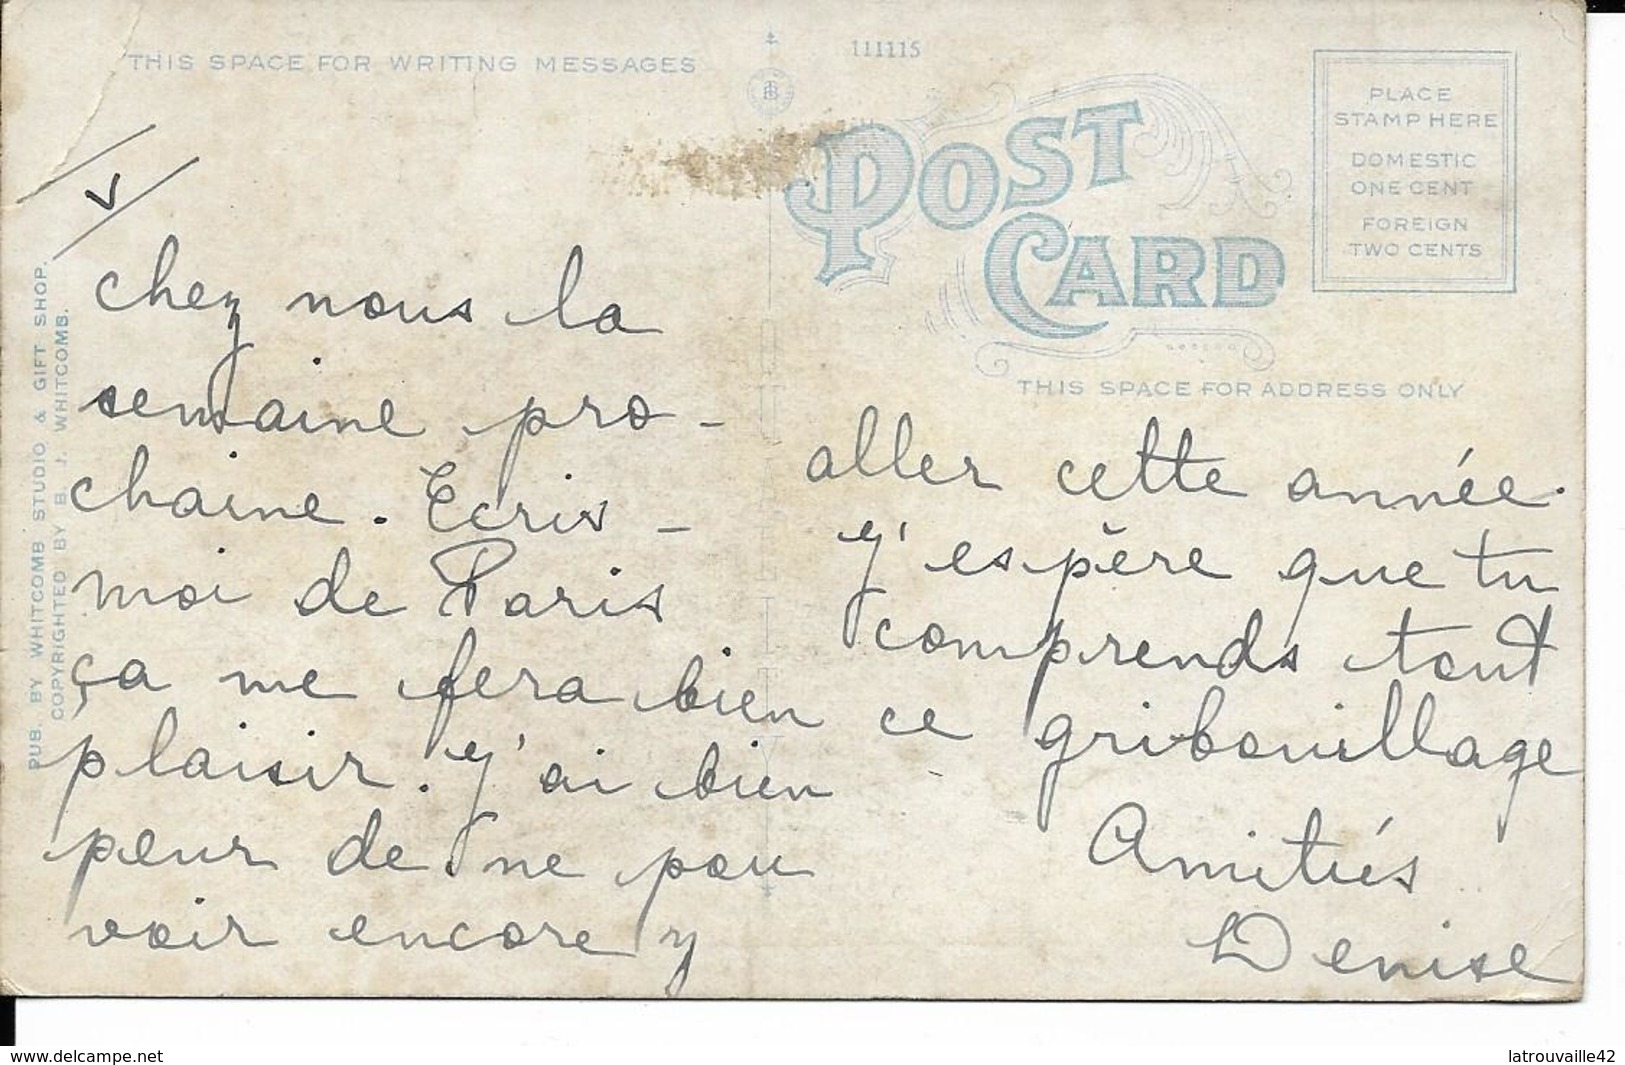 THIS SPACE FOR WRITING MESSAGES
111115
POST
CARD
PLACE
STAMP HERE
DOMESTIC
ONE CENT
FOREIGN
TWO CENTS
THIS SPACE FOR ADDRESS ONLY
PUB. BY WHITCOMB STUDIO & GIFT SHOP.
COPYRIGHTED BY B. J. WHITCOMB.
V
chez nous la
semaine pro-
chaine. Ecris-
moi de Paris
ça me fera bien
plaisir. J'ai bien
peur de ne pou
voir encore y
aller cette année.
J'espère que tu
comprends tout
ce gribouillage
Amitiés
Denise
www.delcampe.net
latrouvaille42